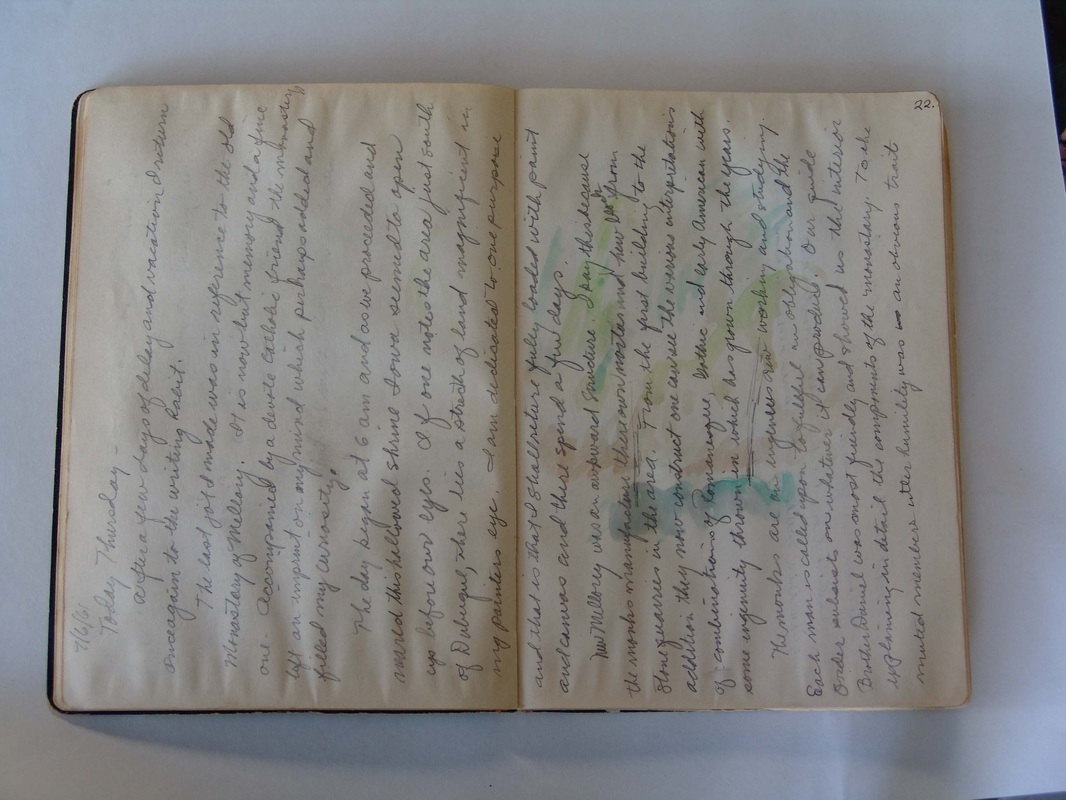 7/6/61
Today Thursday -
after a few days of delay and vacation, I return
once again to the writing habit.
The last jot I made was in reference to the old
Monastary of Mellory. It is now but memory and a fine
one. Accompanied by a devote Catholic friend the monastery
left an imprint on my mind which perhaps added and
filled my curiosity.
The day began at 6 am and as we proceeded and
neared this hallowed shrine Iowa seemed to open
up before our eyes. If one notes the area just south
of Dubuque, there lies a stretch of land magnificent in
my painters eye. I am dedicated to one purpose
22.
and that is that I shall return fully loaded with paint
and canvas and there spend a few days.
New Mellory was an awkward grandure. I say this because
the monks manufactured there own mortar and hew from
stone quarries in the area. From the first building to the
addition they now construct one can see the various interpretations
of combinations of Romanesque, Gothic and early American with
some engenuity thrown in which has grown through the years.
The monks are an ingenius crew working and studying.
Each man is called upon to fulfill an obligation and the
Order enlists on whatever it can produce. Our guide
Brother Daniel was most friendly and showed us the interior
explaining in detail the components of the monastary. To the
muted members utter humility was an obvious trait